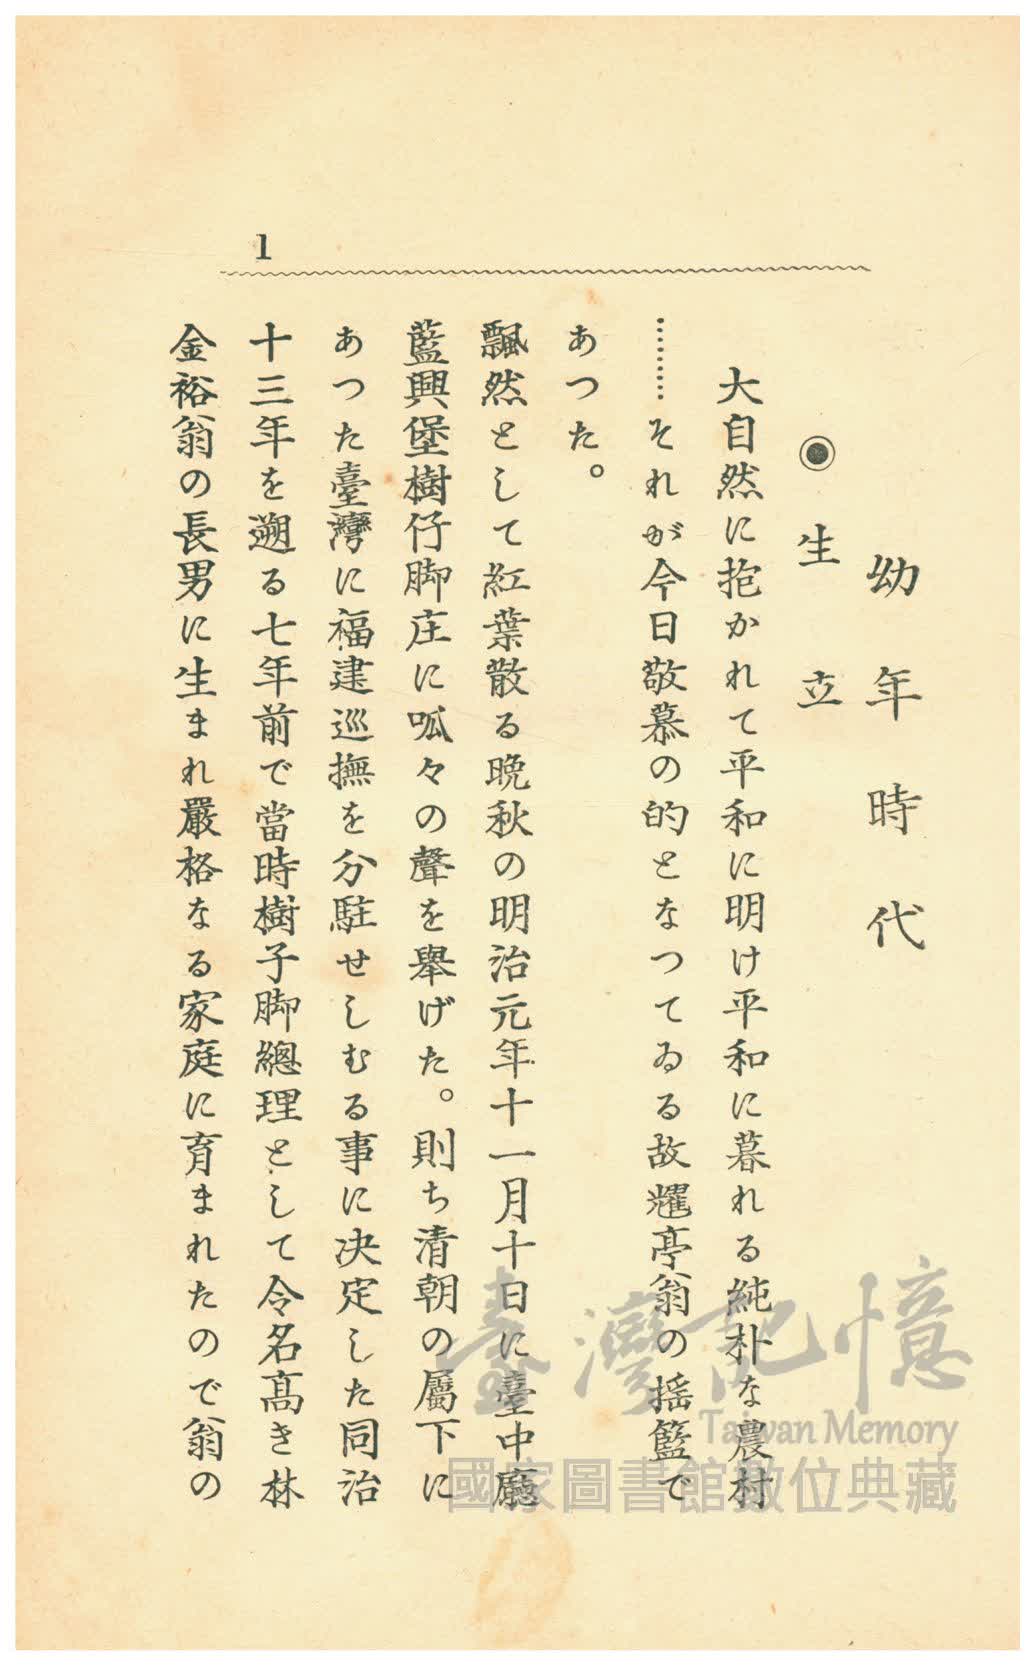 1
幼年時代
◉生立
大自然に抱かれて平和に明け平和に暮れる純朴な農村
………それが今日敬慕の的となつてゐる故耀亭翁の揺籃で
あつた。
飄然として紅葉散る晩秋の明治元年十一月十日に臺中廳
藍興堡樹仔脚庄に呱々の聲を舉げた。則ち清朝の屬下に
あつた臺灣に福建巡撫を分駐せしむる事に決定した同治
十三年を遡る七年前で當時樹子脚總理として令名高き林
金裕翁の長男に生まれ嚴格なる家庭に育まれたので翁の
臺灣記憶
Taiwan Memory
國家圖書館數位典藏